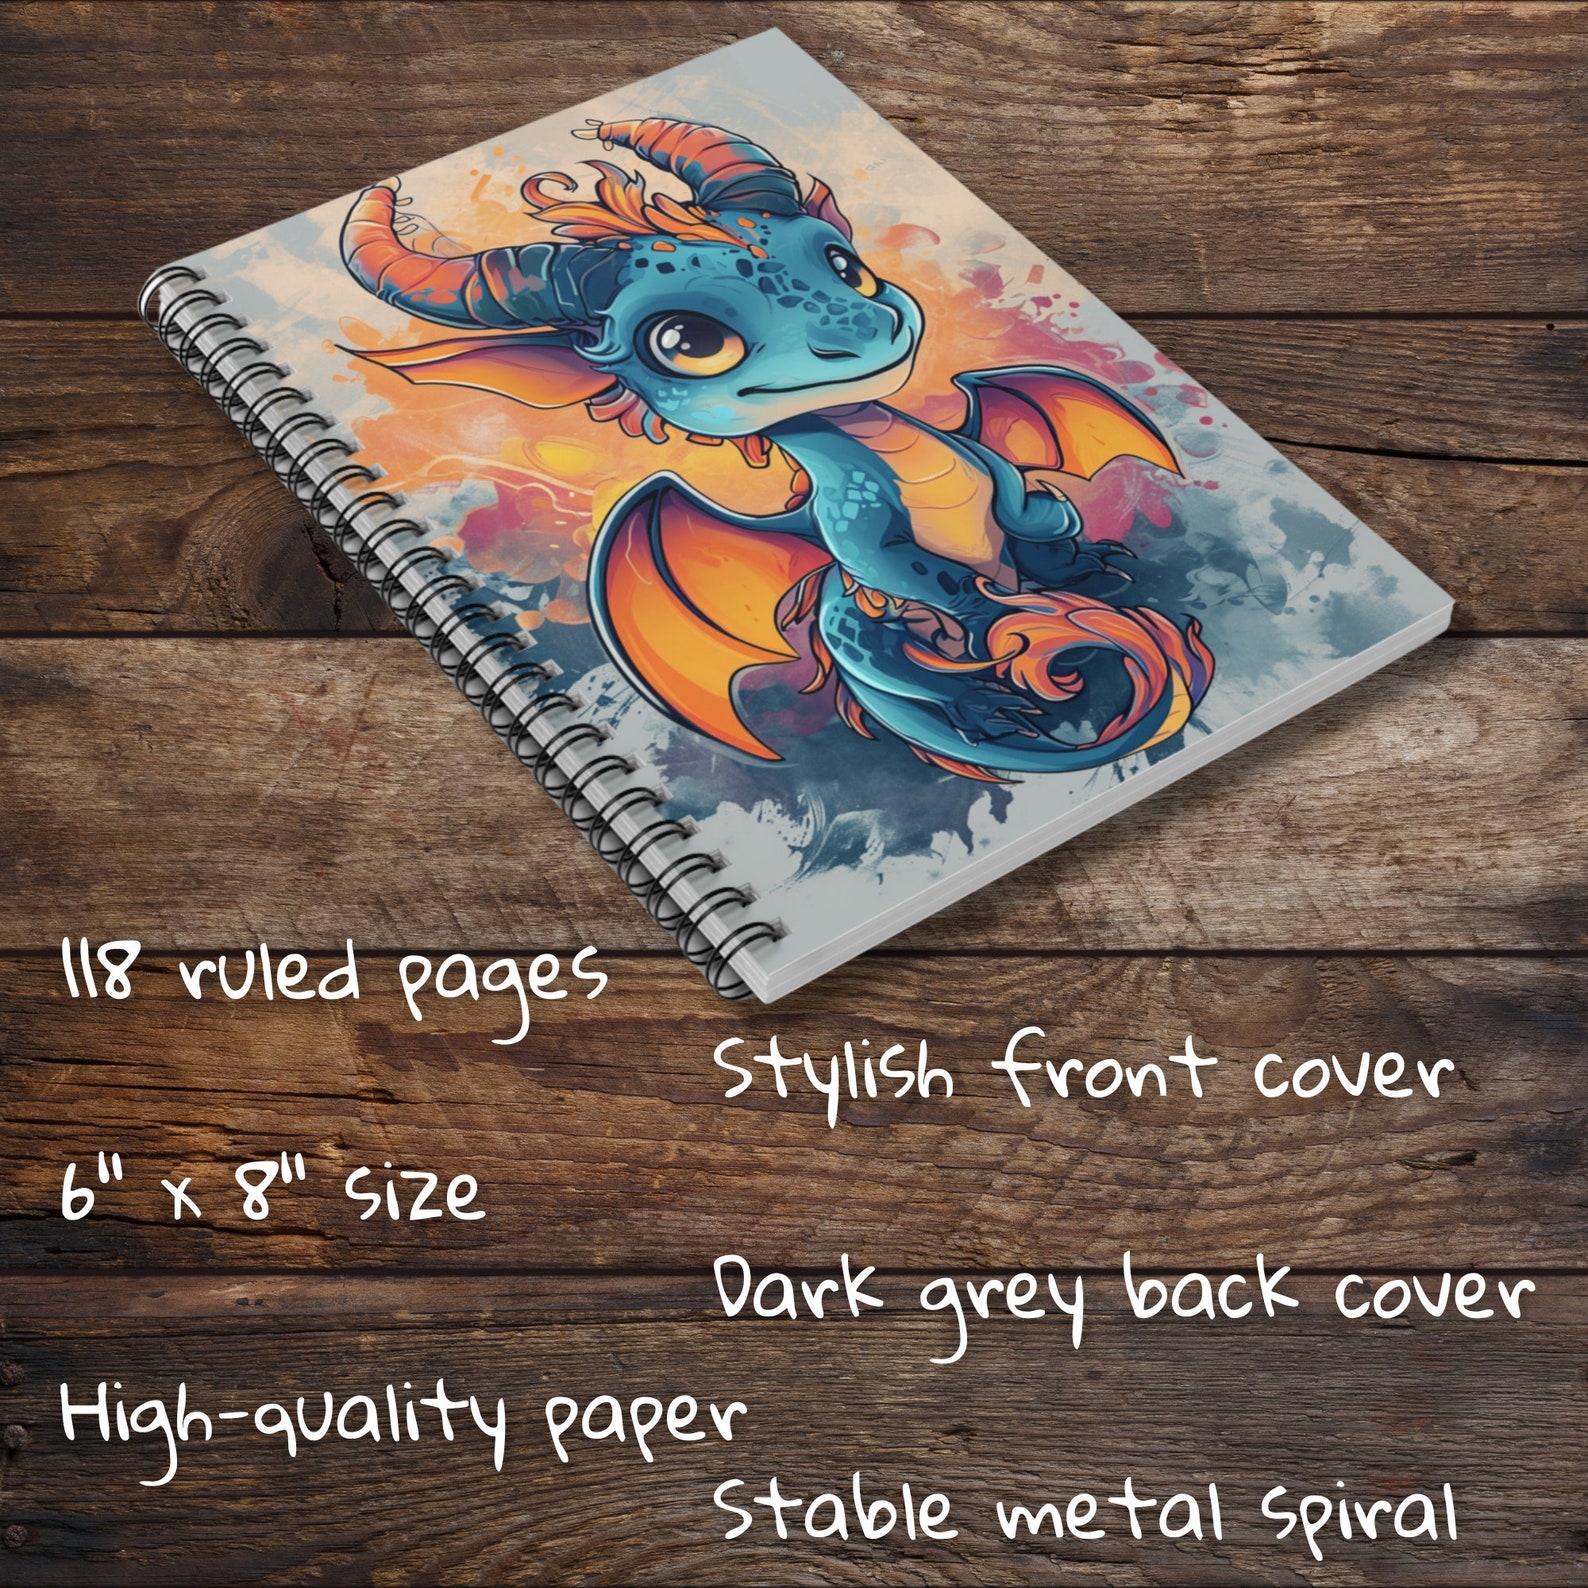 118 ruled pages
Stylish front cover
6" x 8" size
Dark grey back cover
High-quality paper
Stable metal spiral